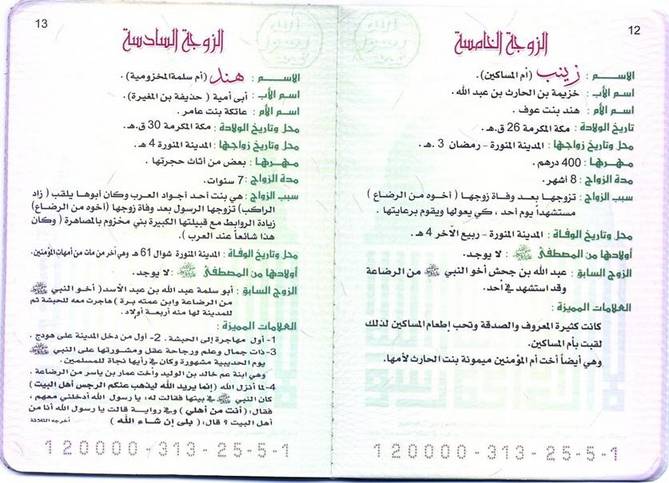 12
الزوجة الخامسة
الاسـم : زينب (أم المساكين) .
اسـم الأب : خزيمة بن الحارث بن عبد الله .
اسـم الأم : هند بنت عوف .
تاريخ الولادة : مكة المكرمة 26 ق.هـ .
محل وتاريخ زواجها : المدينة المنورة - رمضان 3 هـ .
مـهـرهـا : 400 درهم .
مدة الزواج : 8 أشهر .
سبب الزواج : تزوجها بعد وفاة زوجها ( أخوه من الرضاع )
مستشهداً يوم أحد ، كي يعولها ويقوم برعايتها .
محل وتاريخ الوفاة : المدينة المنورة - ربيع الآخر 4 هـ .
أولادها من المصطفى ﷺ : لا يوجد .
الزوج السابق : عبد الله بن جحش أخو النبي ﷺ من الرضاعة
وقد استشهد في أحد .
العلامات المميزة :
كانت كثيرة المعروف والصدقة وتحب إطعام المساكين لذلك
لقبت بأم المساكين .
وهي أيضاً أخت أم المؤمنين ميمونة بنت الحارث لأمها .
120000-313-25-5-1
13
الزوجة السادسة
الاسـم : هند (أم سلمة المخزومية) .
اسم الأب : أبى أمية ( حذيفة بن المغيرة) .
اسم الأم : عاتكة بنت عامر .
محل وتاريخ الولادة : مكة المكرمة 30 ق.هـ .
محل وتاريخ زواجها : المدينة المنورة 4 هـ .
مـهـرهـا : بعض من أثاث حجرتها .
مدة الزواج : 7 سنوات .
سبب الزواج : هي بنت أحد أجواد العرب وكان أبوها يلقب ( زاد
الراكب) تزوجها الرسول بعد وفاة زوجها (أخوه من الرضاع)
زيادة الروابط مع قبيلتها الكبيرة بني مخزوم بالمصاهرة ( وكان
هذا شائعاً عند العرب ) .
محل وتاريخ الوفاة : المدينة المنورة شوال 61 هـ وهي آخر من مات من أمهات المؤمنين .
أولادها من المصطفى ﷺ : لا يوجد .
الزوج السابق : أبو سلمة عبد الله بن عبد الأسد( أخو النبي ﷺ
من الرضاعة وابن عمته برة ) هاجرت معه للحبشة ثم
للمدينة لها منه أربعة أولاد .
العلامات المميزة :
1- أول مهاجرة إلى الحبشة . 2- أول من دخل المدينة على هودج .
3- ذات جمال وعلم ورجاحة عقل ومشورتها على النبي ﷺ
يوم الحديبية مشهورة وكان في رأيها نجاة للمسلمين .
وهي ابنة عم خالد بن الوليد وأخت عمار بن ياسر من الرضاعة .
4- لما أنزل الله (إنما يريد الله ليذهب عنكم الرجس أهل البيت )
كان النبي ﷺ في بيتها فقالت له ، يا رسول الله أدخلني معهم ،
فقال: ( أنت من أهلي ) وفي رواية قالت يا رسول الله أنا من
أهل البيت ؟ قال: ( بلى إن شاء الله ) أخرجه الثلاثة
120000-313-25-5-1